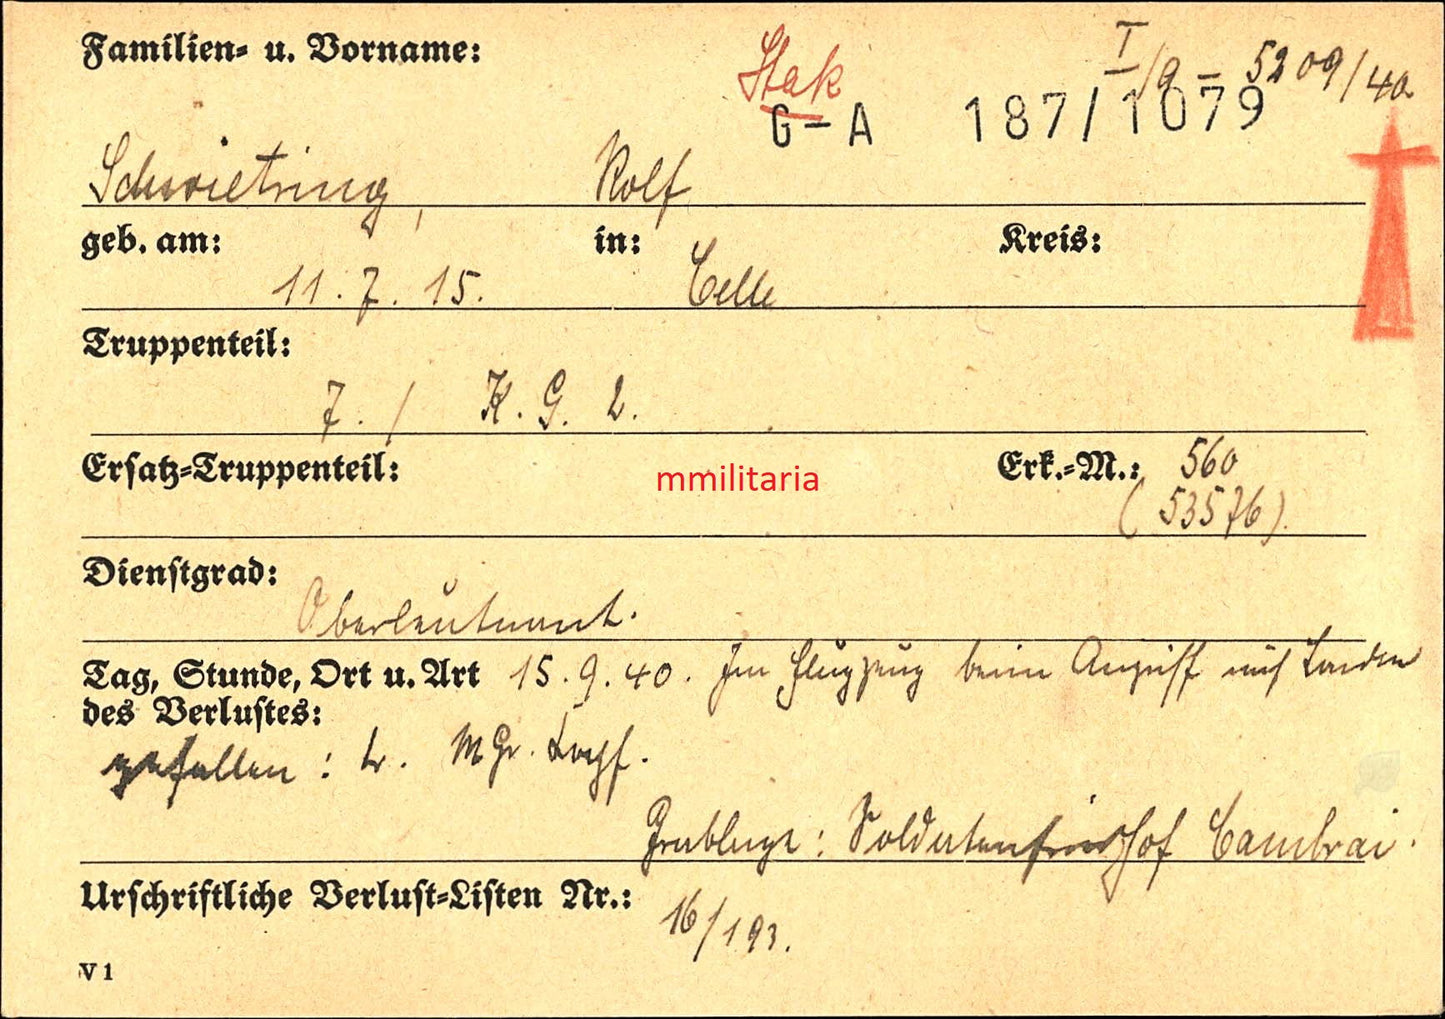 Familien- u. Vorname:
Stak
I/9 - 5209/40
G-A 187/1079
Schwietring, Rolf
geb. am: in: Kreis:
11.7.15. Celle
Truppenteil:
7. / K.G. 2.
Ersatz-Truppenteil: Erk.-M.: 560
mmilitaria
(53576)
Dienstgrad:
Oberleutnant.
Tag, Stunde, Ort u. Art 15.9.40. Im Flugzeug beim Angriff auf London
des Verlustes:
gefallen: Kopf.
Grablage: Soldatenfriedhof Cambrai.
Urschriftliche Verlust-Listen Nr.:
16/193.
V 1